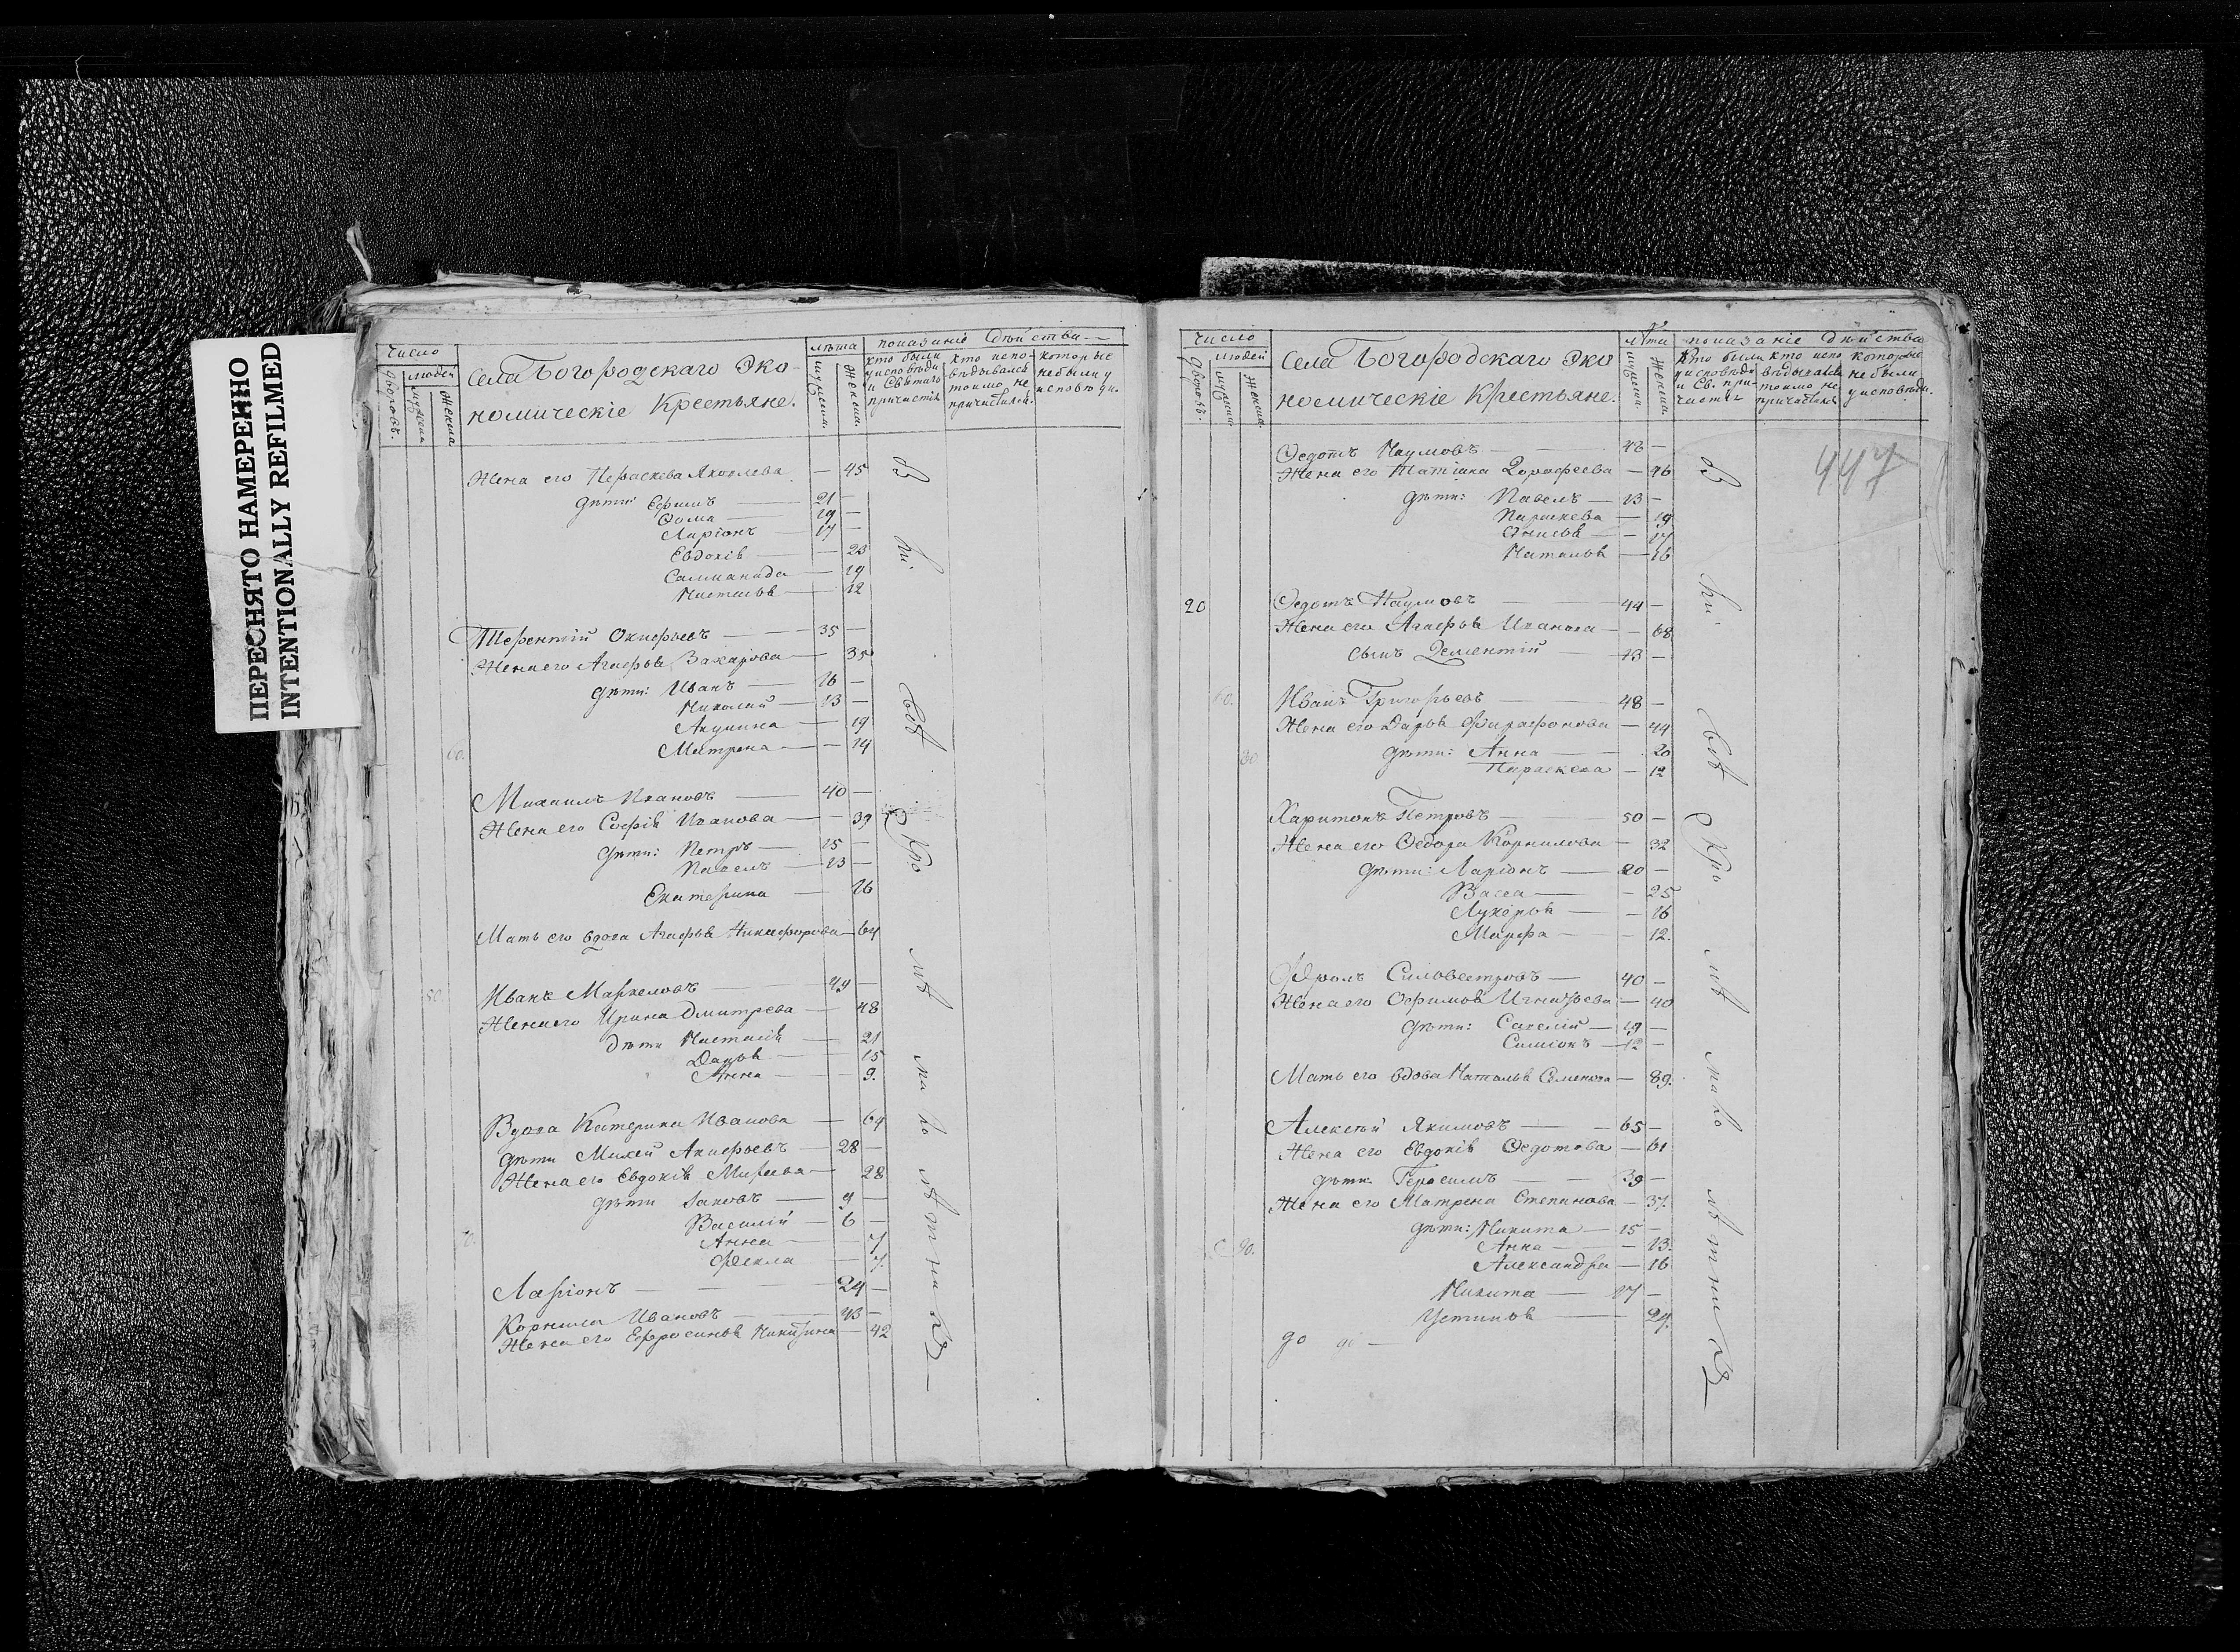 ПЕРЕСНЯТО НАМЕРЕННО
INTENTIONALLY REFILMED
число
людей
дворовъ.
мужеска
женска
Села Богородскаго Эко-
номическіе Крестьяне.
лѣта
мужеска.
женска.
показаніе дѣйства
кто были у исповѣди и Святаго причастія
кто исповѣдывался токмо, не причастился.
которые не были у исповѣди.
Жена его Пераскева Яковлева — 45
дѣти: Ефимъ — 21 —
Ѳома — 19 —
Ларіонъ — 17 —
Евдокія — 23
— 19
Настасья — 12
Терентій — 35 —
Жена его Агафья Захарова — 35
дѣти: Иванъ — 16 —
Николай — 13 —
Акулина — 19
Матрена — 14
60.
Михаилъ Ивановъ — 40 —
Жена его Софія Иванова — 39
дѣти: Петръ — 15 —
Павелъ — 13 —
Екатерина — 16
Мать его вдова Агафья Никифорова — 64
50.
Иванъ Маркеловъ — 49 —
Жена его Ирина Дмитрева — 48
дѣти Настасія — 21
Дарья — 15
Анна — 9.
Вдова Катерина Иванова — 69
дѣти — 28 —
Жена его Евдокія — 28
дѣти Яковъ — 9 —
Василій — 6 —
Анна — 7
Фекла — 7.
Ларіонъ — 24 —
Корнила Ивановъ — 43 —
Жена его Ефросинья Никитина — 42
число
людей
дворовъ.
мужеска.
женска.
Села Богородскаго Эко
номическіе Крестьяне.
лѣта
мужеска.
женска.
показаніе дѣйства
Кто были у исповѣди и Св. при- частія
кто испо вѣдывался токмо не причастился
которые не были у исповѣди.
447
Ѳедотъ Наумовъ — 46 —
Жена его Татіана Дорофеева — 46
дѣти: Павелъ — 13 —
Параскева — 19
— 17
Наталья — 16
20
Ѳедотъ Наумовъ — 44 —
Жена его Агафья Иванова — 68
сынъ Дементій — 13 —
Иванъ Григорьевъ — 48 —
Жена его Дарья Фарафонова — 44
80
дѣти: Анна — 20
Параскева — 12
Харитонъ Петровъ — 50 —
Жена его Ѳедора Корнилова — 32
дѣти: Ларіонъ — 20 —
Васса — 25
Лукерья — 16
Марфа — 12.
Фролъ Силовестровъ — 40 —
Жена его Ефимья Игнатьева — 40
дѣти: Савелій — 19 —
Симіонъ — 12 —
Мать его вдова Наталья Семенова — 89.
Алексѣй Якимовъ — 65 —
Жена его Евдокія Ѳедотова — 61
дѣти: Герасимъ — 39 —
Жена его Матрена Степанова — 37.
дѣти: Никита — 15 —
90.
Анна — 13.
Александра — 16
Никита — 17 —
Устинья — 24.